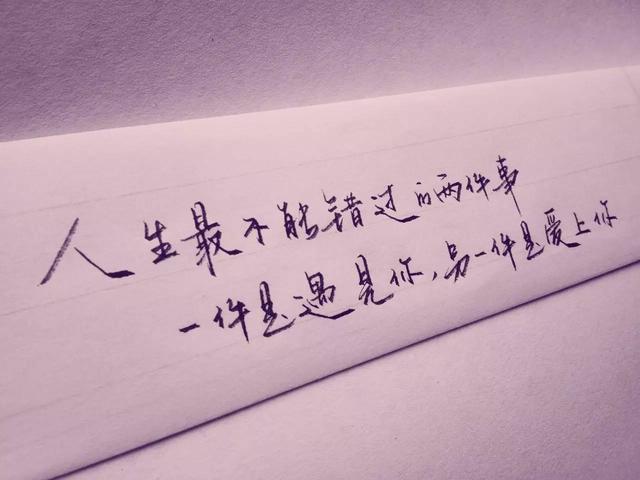 人生最不能错过的两件事
一件是遇见你,另一件是爱上你